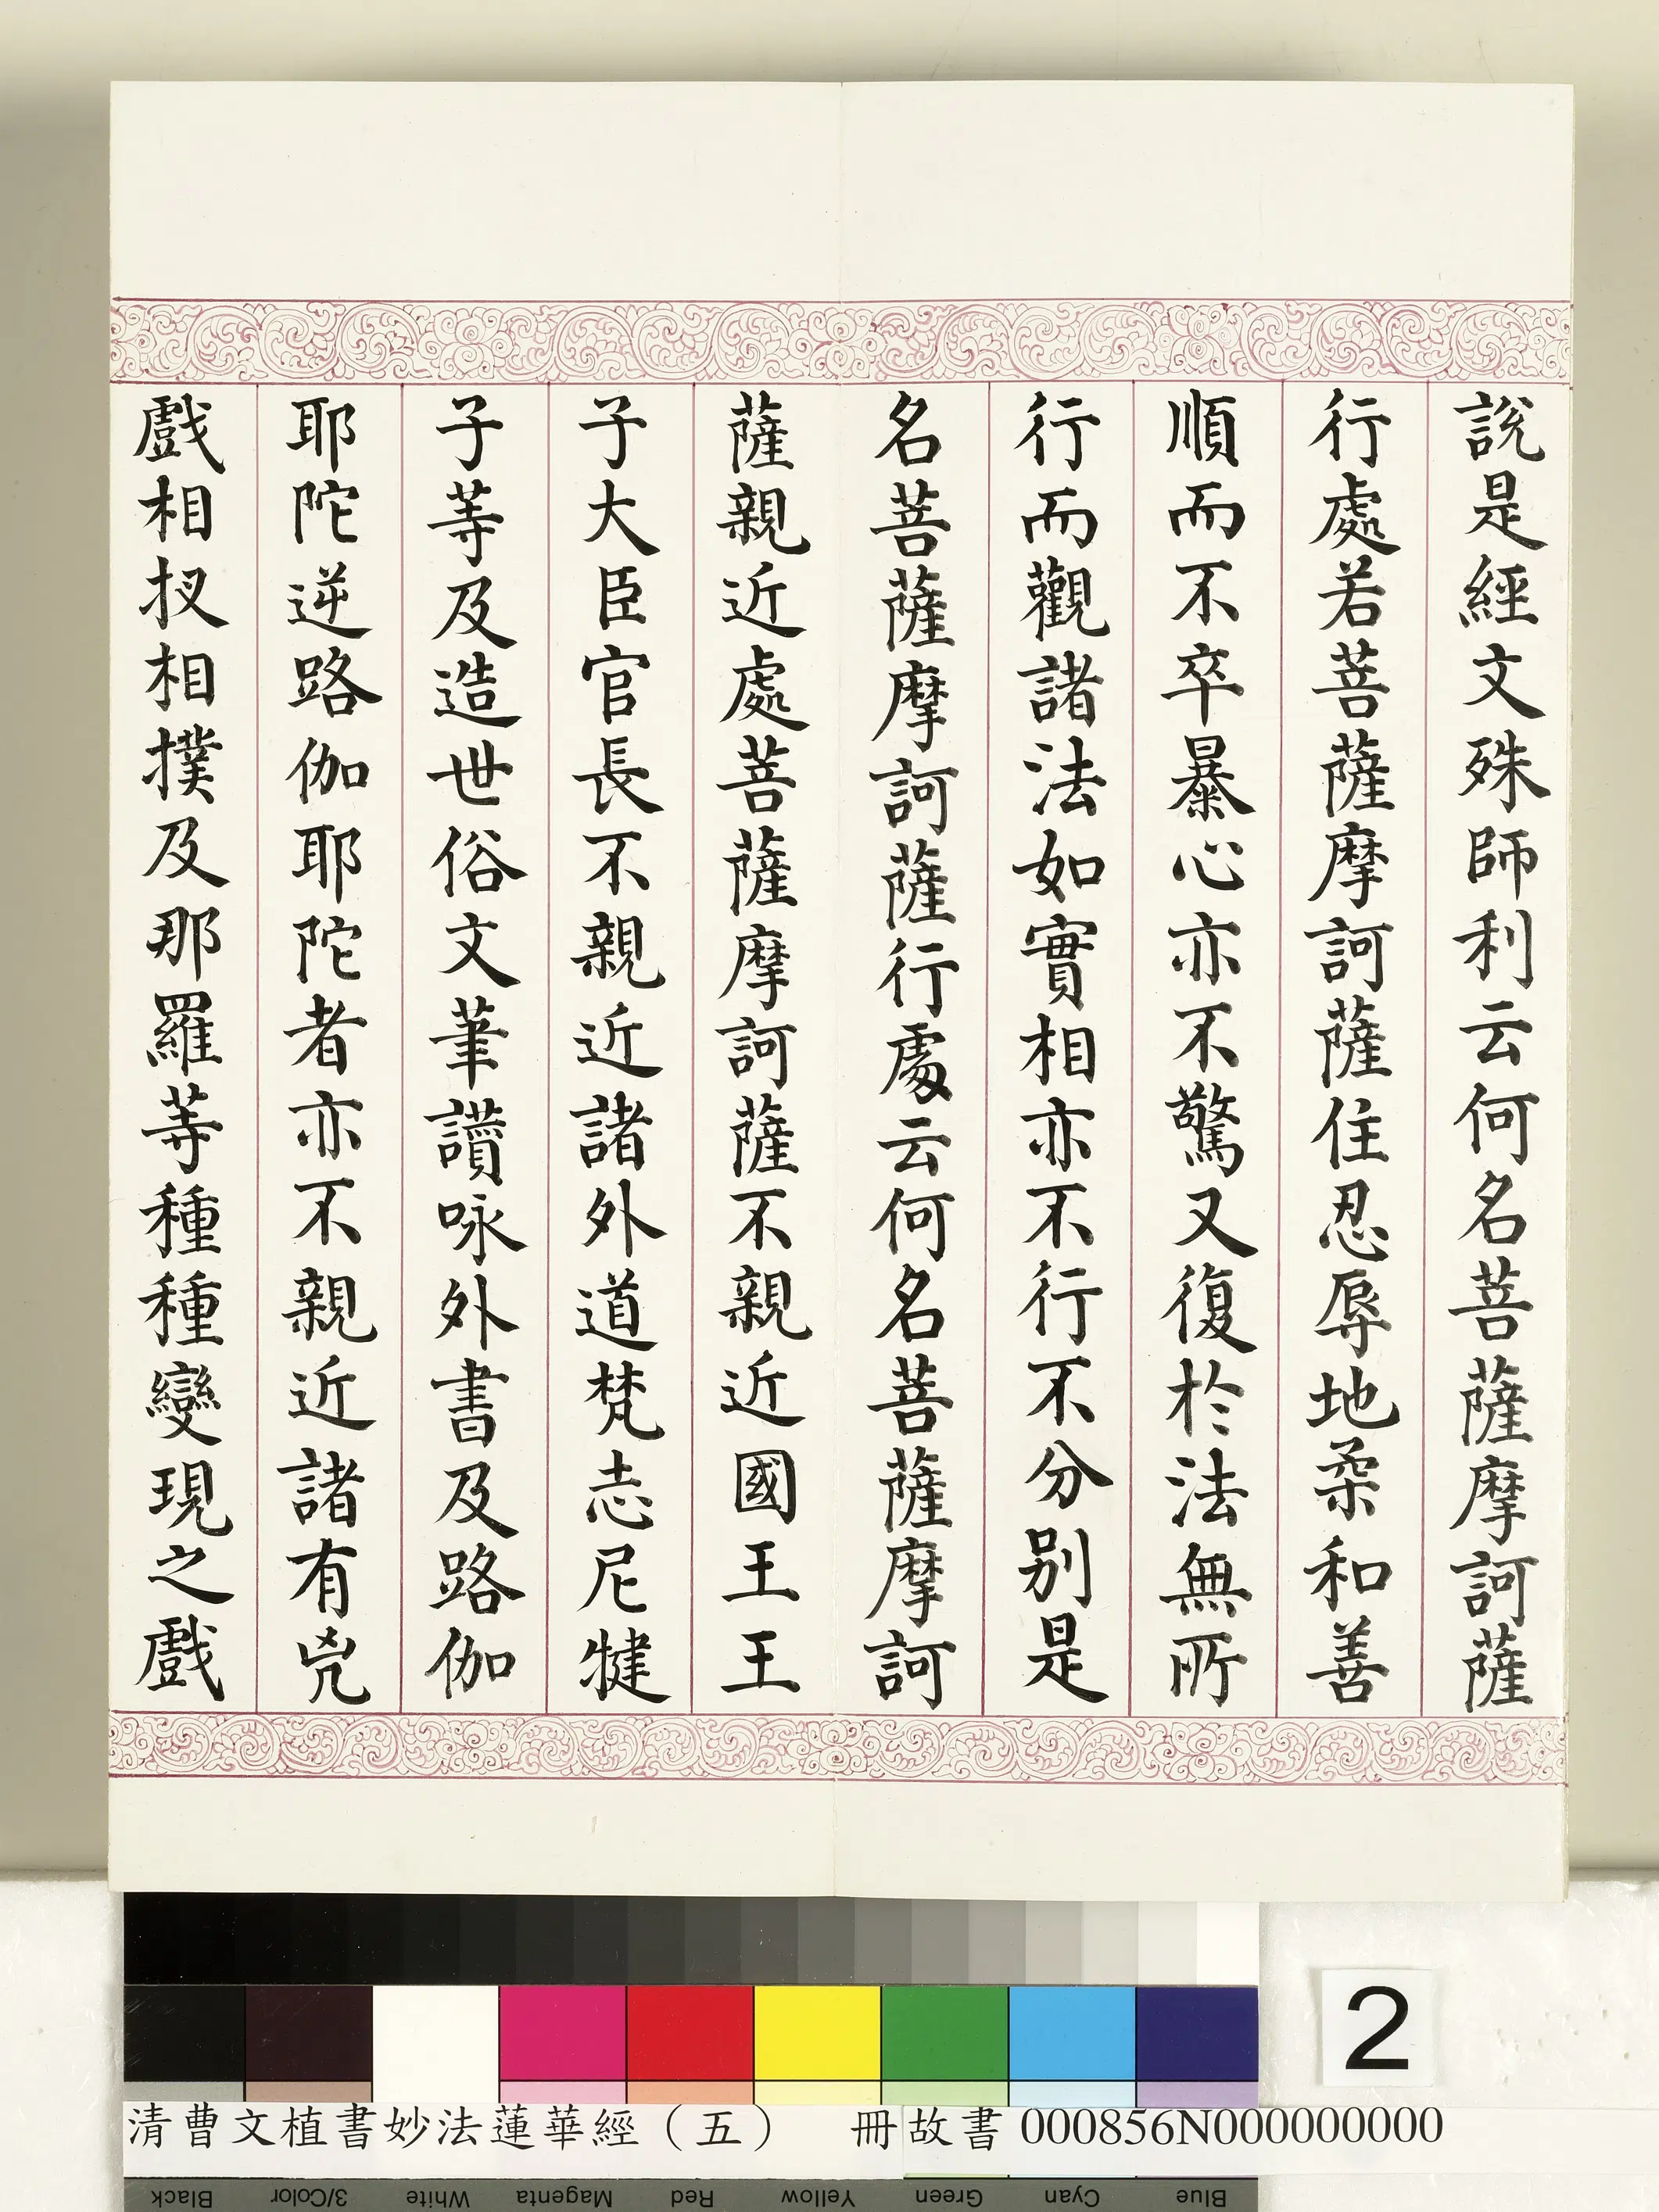 說是經文殊師利云何名菩薩摩訶薩
行處若菩薩摩訶薩住忍辱地柔和善
順而不卒暴心亦不驚又復於法無所
行而觀諸法如實相亦不行不分別是
名菩薩摩訶薩行處云何名菩薩摩訶
薩親近處菩薩摩訶薩不親近國王王
子大臣官長不親近諸外道梵志尼犍
子等及造世俗文筆讚咏外書及路伽
耶陀逆路伽耶陀者亦不親近諸有兇
戲相扠相撲及那羅等種種變現之戲
2
清曹文植書妙法蓮華經（五） 冊故書 000856N000000000
Black 3/Color White Magenta Red Yellow Green Cyan Blue